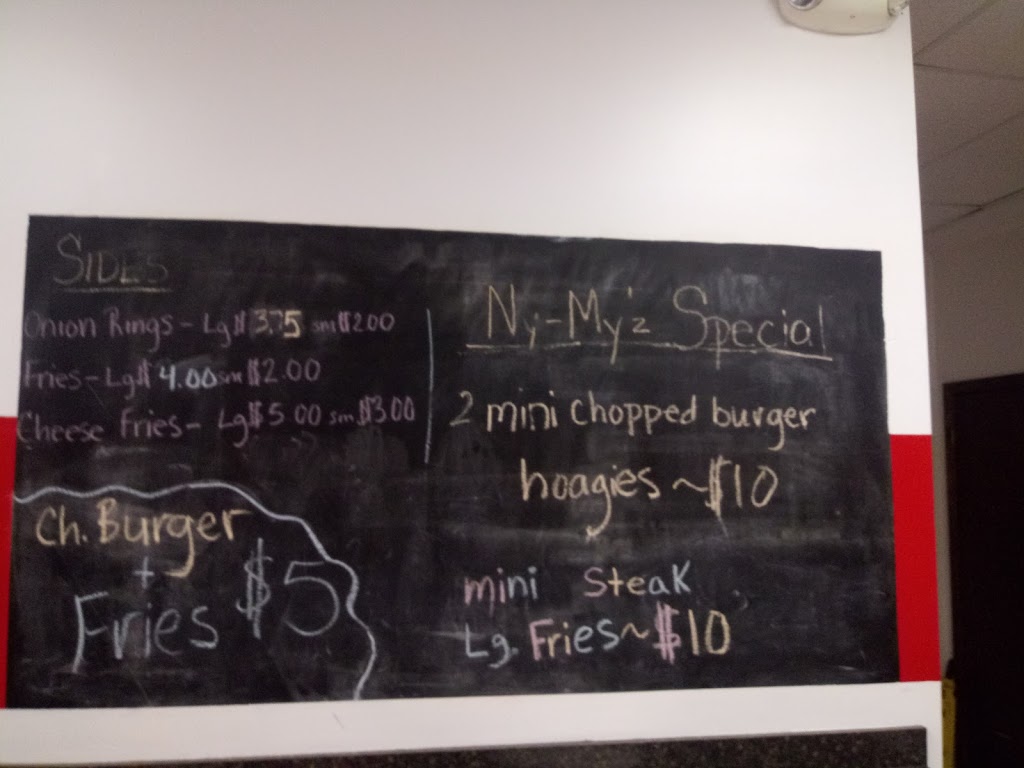 SIDES
Onion Rings - Lg $3.75 sm $2.00
Fries - Lg $4.00 sm $2.00
Cheese Fries - Lg $5.00 sm $3.00
Ch. Burger
+
Fries $5
Ny-My'z Special
2 mini chopped burger
hoagies ~ $10
mini Steak
Lg. Fries ~ $10